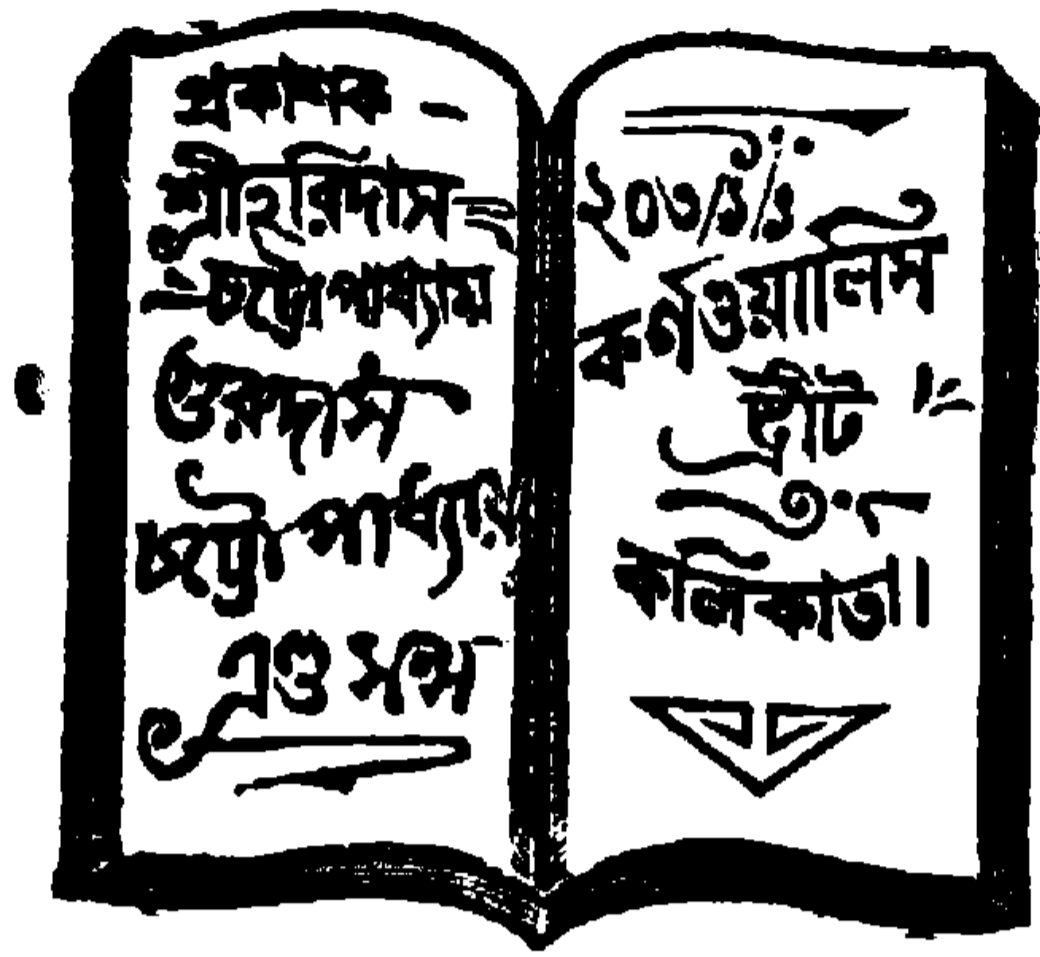 প্রকাশক -
শ্রীহরিদাস
চট্টোপাধ্যায়
গুরুদাস
চট্টোপাধ্যায়
এণ্ড সন্স
২০৩/১/১
কর্ণওয়ালিস
ষ্ট্রীট
কলিকাতা।